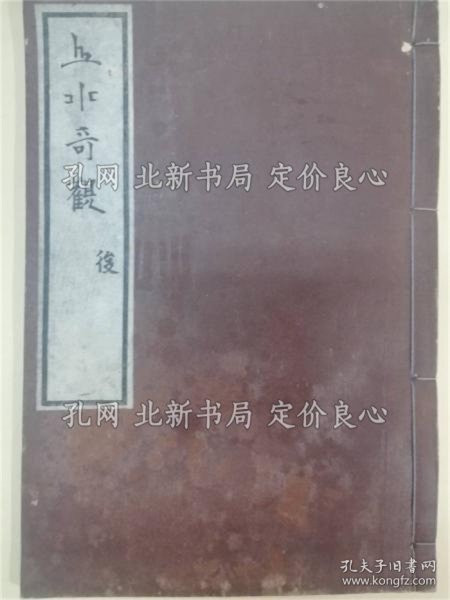 丘水奇觀
後
孔网 北新书局 定价良心
孔网 北新书局 定价良心
孔夫子旧书网
www.kongfz.com